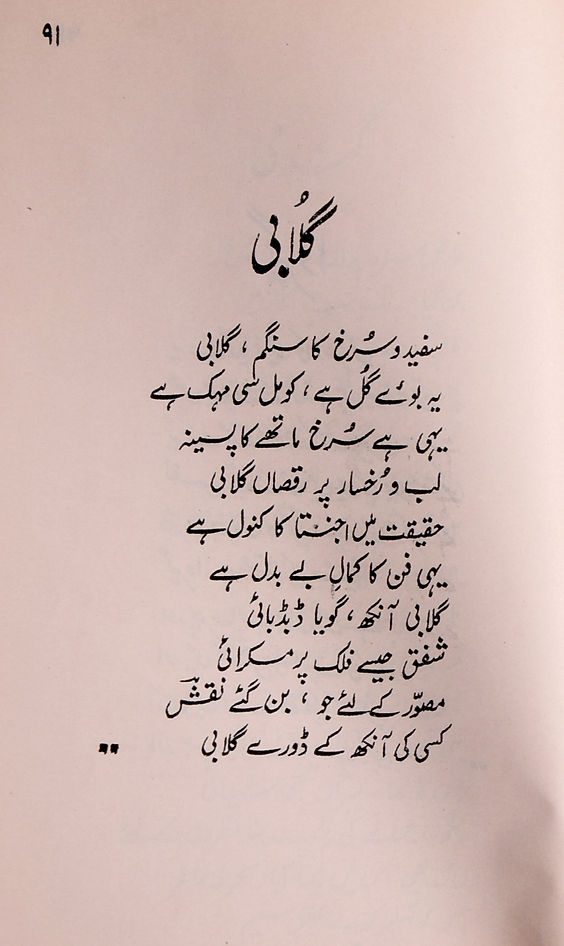 ۹۱
گلُابی
سفید و سُرخ کا سنگم ، گلابی
یہ بوئے گُل ہے ، کومل سی مہک ہے
یہی ہے سُرخ ماتھے کا پسینہ
لب و رُخسار پر رقصاں گلابی
حقیقت میں اجنتا کا کنول ہے
یہی فن کا کمالِ بے بدل ہے
گلابی آنکھ ، گویا ڈبڈبائی
شفق جیسے فلک پر مسکرائی
مصوّر کے لئے جو ، بن گئے نقش
کسی کی آنکھ کے ڈورے گلابی